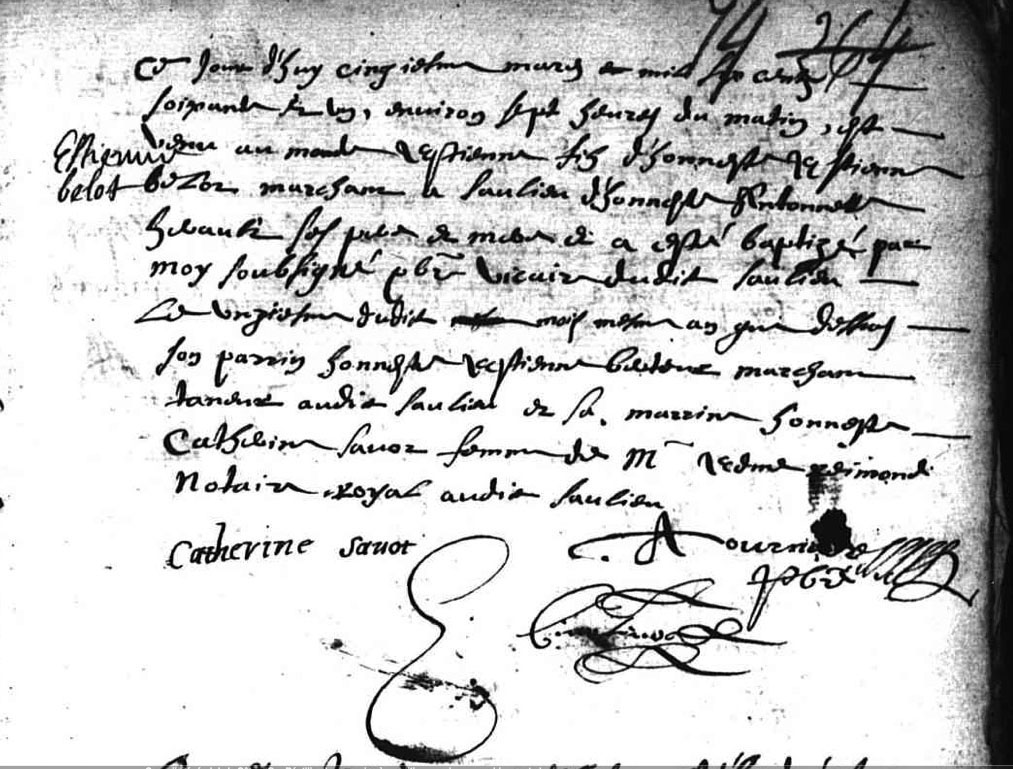 74
Ce jour d'huy cinqiesme mars et mil six cents
soixante et un, environ sept heures du matin, est
venu au monde Estienne filz d'honneste Estienne
Estienne
belot
Belot marchant a Saulieu d'honneste Antonnette
ses pere et mere et a esté baptizé par
moy soubsigné pbre vicaire dudit Saulieu
Le unziesme dudit mois mesme an que dessus
son parrin honneste Estienne marchant
taneur audit Saulieu et sa marrine honneste
Catherine Savot femme de Me Edme Reimond
Notaire royal audit Saulieu
Catherine Savot
pbre